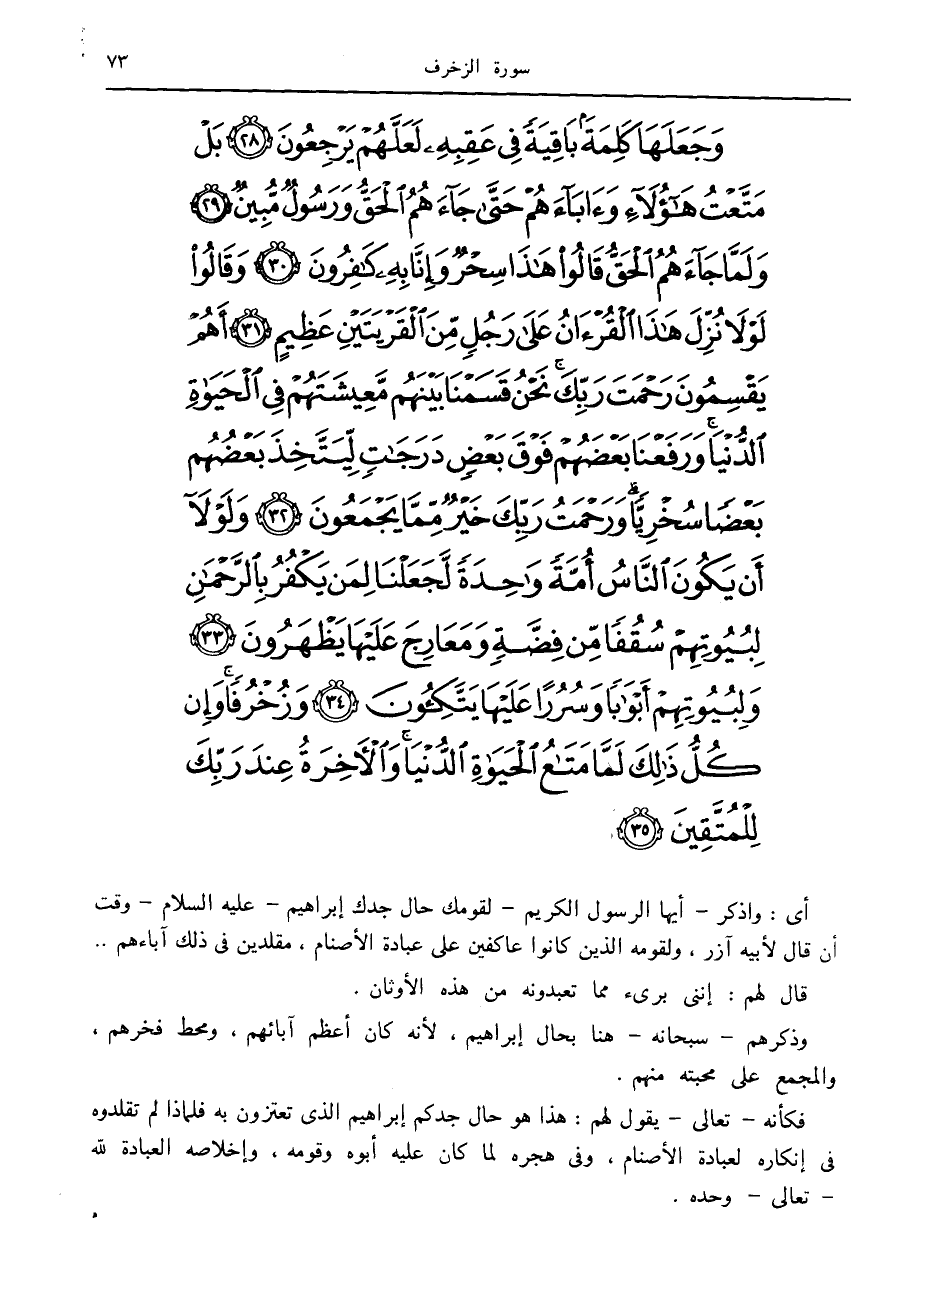 سورة الزخرف ٧٣
وَجَعَلَهَا كَلِمَةً بَاقِيَةً فِي عَقِبِهِۦ لَعَلَّهُمْ يَرْجِعُونَ ٢٨ بَلْ
مَتَّعْتُ هَٰٓؤُلَآءِ وَءَابَآءَهُمْ حَتَّىٰ جَآءَهُمُ ٱلْحَقُّ وَرَسُولٌ مُّبِينٌ ٢٩
وَلَمَّا جَآءَهُمُ ٱلْحَقُّ قَالُوا۟ هَٰذَا سِحْرٌ وَإِنَّا بِهِۦ كَٰفِرُونَ ٣٠ وَقَالُوا۟
لَوْلَا نُزِّلَ هَٰذَا ٱلْقُرْءَانُ عَلَىٰ رَجُلٍ مِّنَ ٱلْقَرْيَتَيْنِ عَظِيمٍ ٣١ أَهُمْ
يَقْسِمُونَ رَحْمَتَ رَبِّكَ ۚ نَحْنُ قَسَمْنَا بَيْنَهُم مَّعِيشَتَهُمْ فِي ٱلْحَيَوٰةِ
ٱلدُّنْيَا ۚ وَرَفَعْنَا بَعْضَهُمْ فَوْقَ بَعْضٍ دَرَجَٰتٍ لِّيَتَّخِذَ بَعْضُهُم
بَعْضًا سُخْرِيًّا ۗ وَرَحْمَتُ رَبِّكَ خَيْرٌ مِّمَّا يَجْمَعُونَ ٣٢ وَلَوْلَآ
أَن يَكُونَ ٱلنَّاسُ أُمَّةً وَٰحِدَةً لَّجَعَلْنَا لِمَن يَكْفُرُ بِٱلرَّحْمَٰنِ
لِبُيُوتِهِمْ سُقُفًا مِّن فِضَّةٍ وَمَعَارِجَ عَلَيْهَا يَظْهَرُونَ ٣٣
وَلِبُيُوتِهِمْ أَبْوَٰبًا وَسُرُرًا عَلَيْهَا يَتَّكِـُٔونَ ٣٤ وَزُخْرُفًا ۚ وَإِن
كُلُّ ذَٰلِكَ لَمَّا مَتَٰعُ ٱلْحَيَوٰةِ ٱلدُّنْيَا ۚ وَٱلْأَخِرَةُ عِندَ رَبِّكَ
لِلْمُتَّقِينَ ٣٥
أى : واذكر – أيها الرسول الكريم – لقومك حال جدك إبراهيم – عليه السلام – وقت
أن قال لأبيه آزر ، ولقومه الذين كانوا عاكفين على عبادة الأصنام ، مقلدين فى ذلك آباءهم ..
قال لهم : إننى برىء مما تعبدونه من هذه الأوثان .
وذكرهم – سبحانه – هنا بحال إبراهيم ، لأنه كان أعظم آبائهم ، ومحط فخرهم ،
والمجمع على محبته منهم .
فكأنه – تعالى – يقول لهم : هذا هو حال جدكم إبراهيم الذى تعتزون به فلماذا لم تقلدوه
فى إنكاره لعبادة الأصنام ، وفى هجره لما كان عليه أبوه وقومه ، وإخلاصه العبادة لله
– تعالى – وحده .